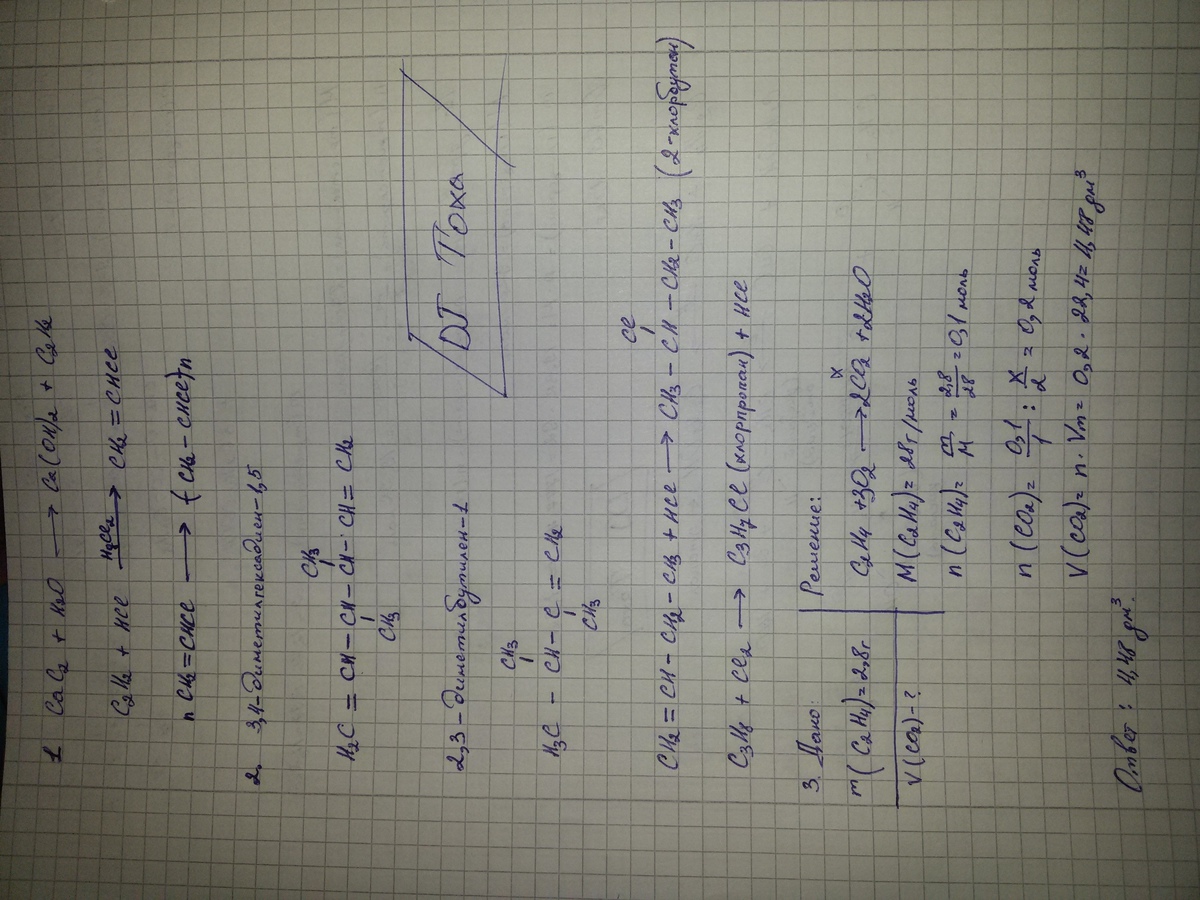 1 CaC2 + H2O ⟶ Ca(OH)2 + C2H2
C2H2 + HCl HgCl2⟶ CH2 = CHCl
n CH2=CHCl ⟶ (-CH2 - CHCl-)n
2. 3,4-диметилгексадиен-1,5
CH3
H2C = CH - CH - CH - CH = CH2
CH3
2,3 - диметилбутилен-1
CH3
H3C - CH - C = CH2
CH3
DJ Тоха
Cl
CH2 = CH - CH2 - CH3 + HCl ⟶ CH3 - CH - CH2 - CH3 (2-хлорбутан)
C3H8 + Cl2 ⟶ C3H7Cl (хлорпропан) + HCl
3. Дано: Решение:
m(C2H4)=2,8г
V(CO2)-?
x
C2H4 + 3O2 ⟶ 2CO2 + 2H2O
M(C2H4)=28г/моль
n(C2H4)= m/M = 2,8/28 = 0,1 моль
n(CO2)= 0,1/1 : x/2 = 0,2 моль
V(CO2)= n · Vm = 0,2 · 22,4 = 4,48 дм³
Ответ: 4,48 дм³.